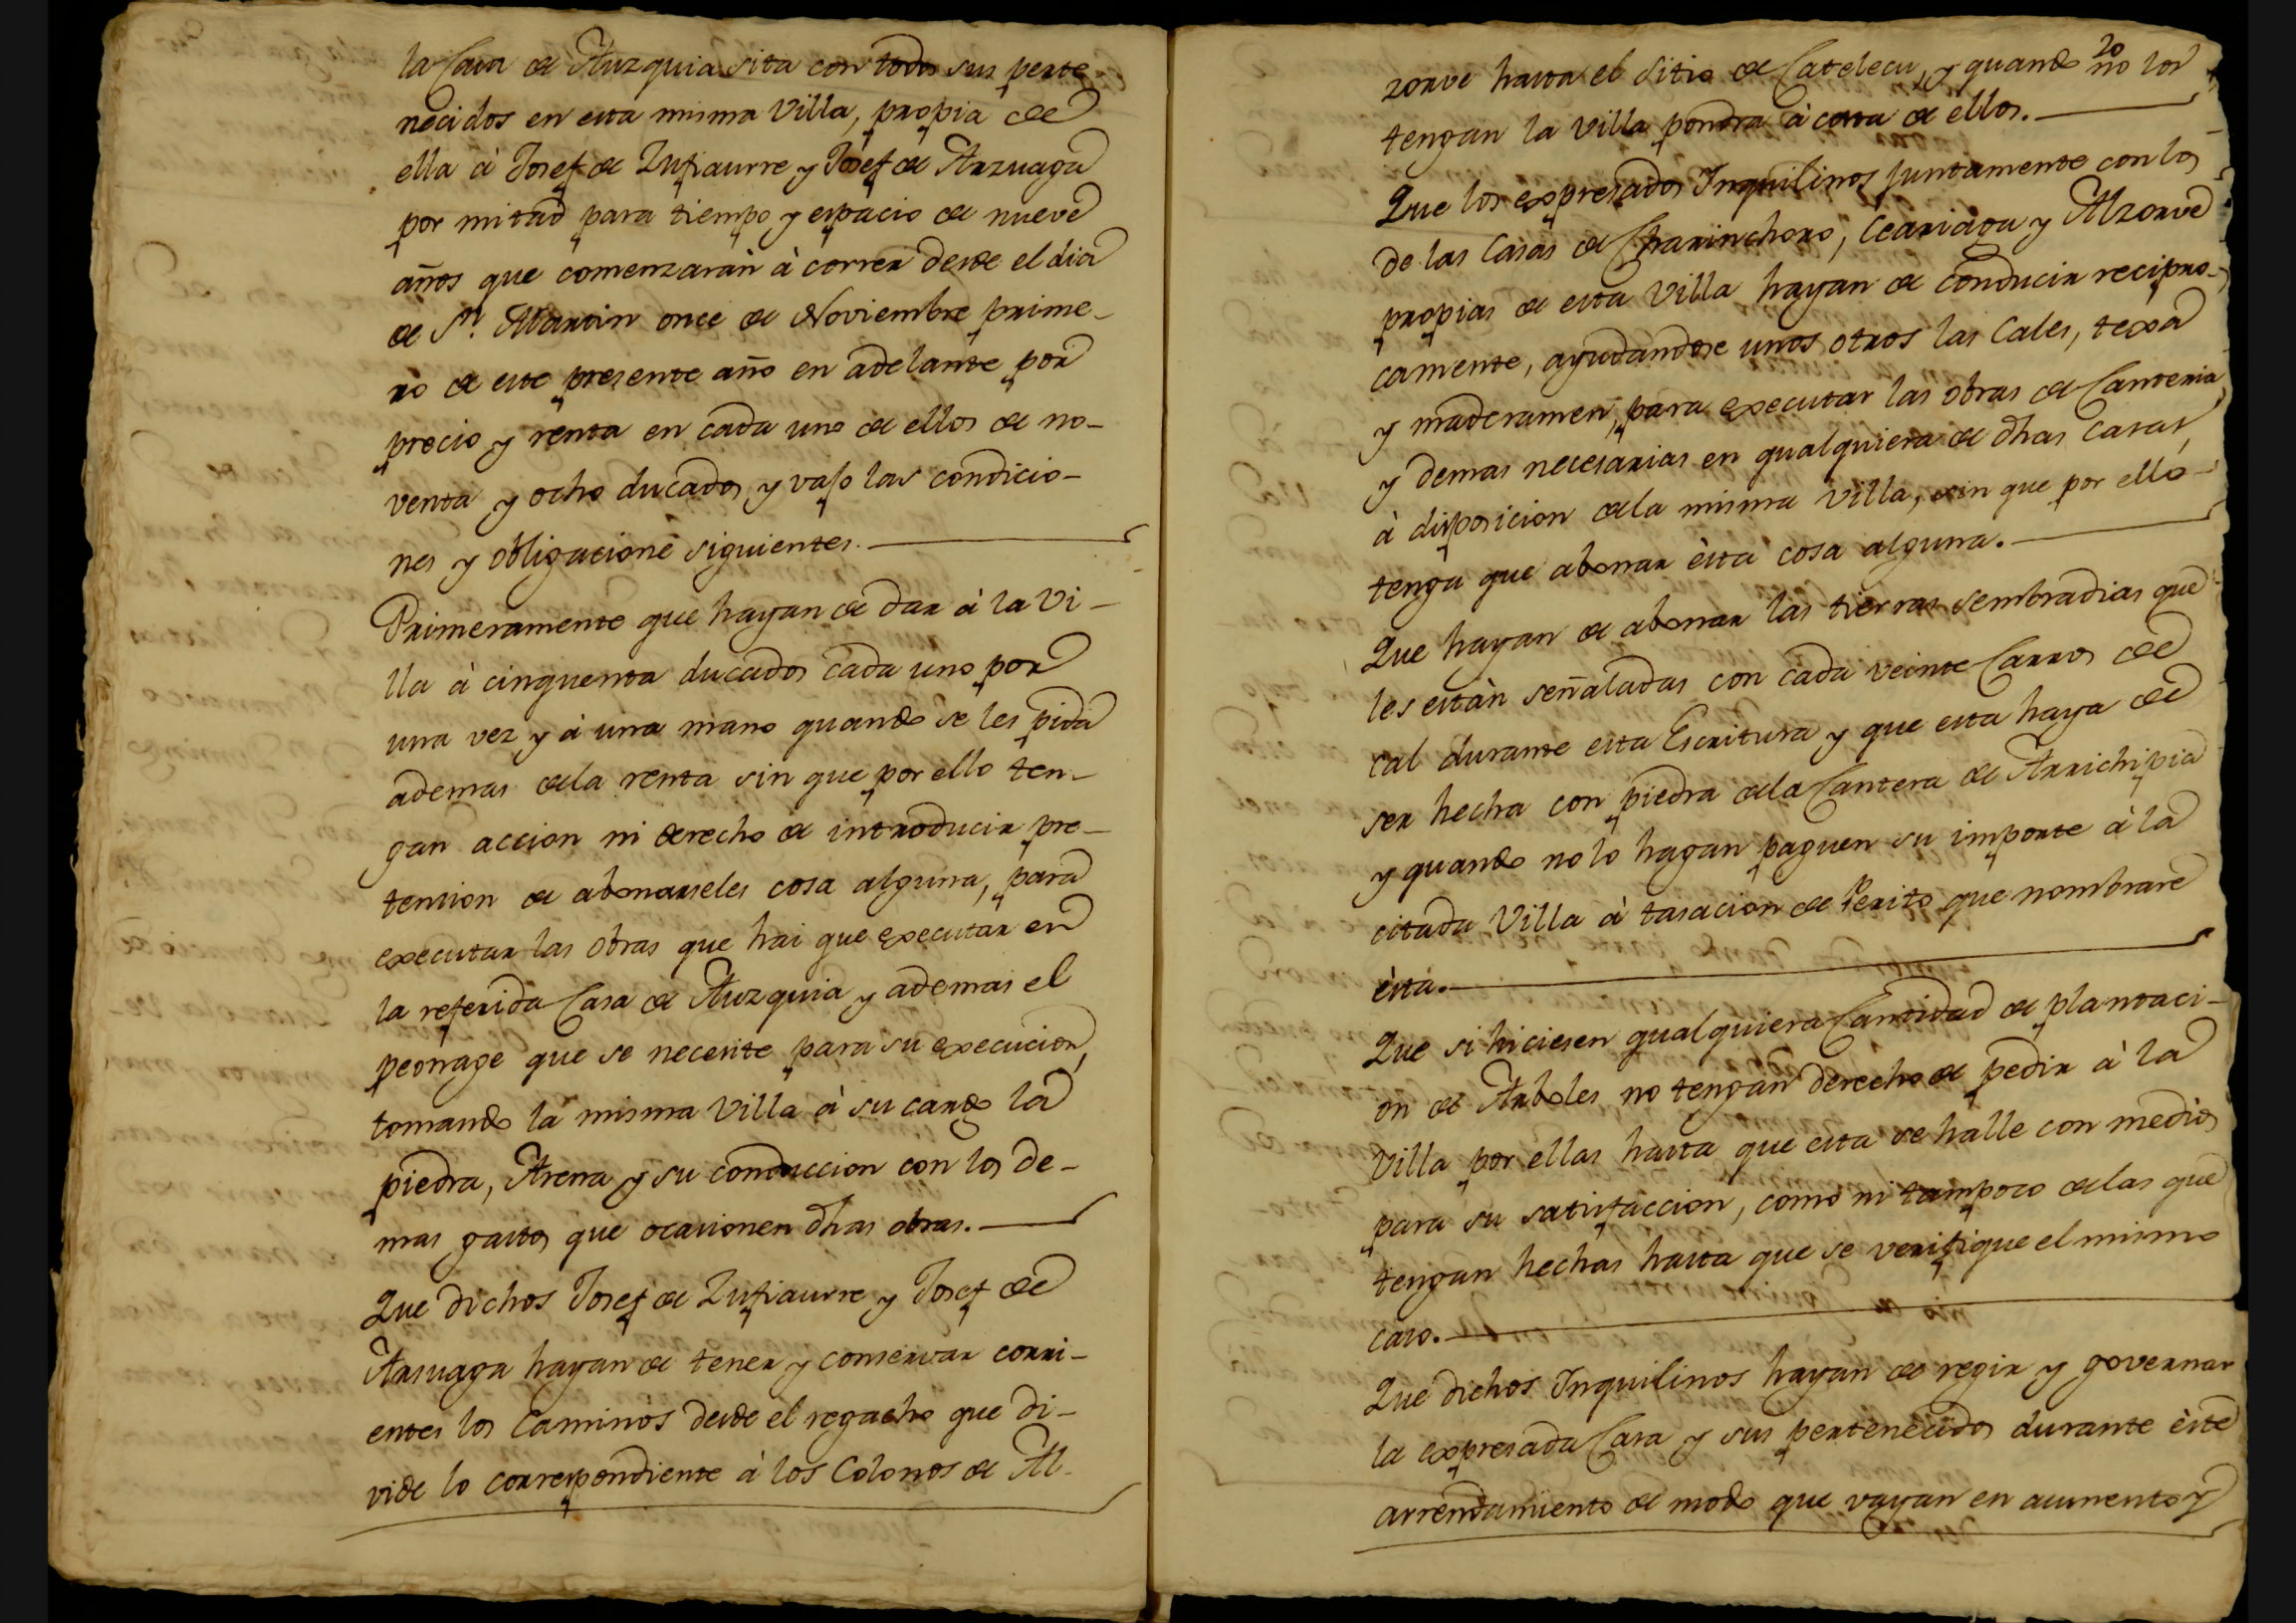 la Casa de Auzquia sita con todos sus perte
necidos en esta misma Villa, propia de
ella à Josef de Zufiaurre y Josef de Arzuaga
por mitad para tiempo y espacio de nueve
años que comenzaràn à correr desde el dia
de Sn. Martin once de Noviembre prime-
ro de este presente año en adelante por
precio y renta en cada uno de ellos de no-
venta y ocho ducados y vajo las condicio-
nes y obligacione siguientes.
Primeramente que hayan de dar à la Vi-
lla à cinquenta ducados cada uno por
una vez y à una mano quando se les pida
ademas de la renta sin que por ello ten-
gan accion ni derecho de introducir pre-
tension de abonarseles cosa alguna, para
executar las obras que hai que executar en
la referida Casa de Auzquia y ademas el
peonage que se necesite para su execucion,
tomando la misma Villa à su cargo la
piedra, Arena y su conduccion con los de-
mas gastos que ocasionen dhas obras.
Que dichos Josef de Zufiaurre y Josef de
Arsuaga hayan de tener y conservar corri-
entes los Caminos desde el regacho que di-
vide lo correspondiente à los Colonos de Al-
20
zorve hasta el sitio de Catelecu, y quando no los
tengan la Villa pondra à costa de ellos.
Que los expresados Inquilinos juntamente con los
de las Casas de Charinchoro, Leariaga y Alzorve
propias de esta Villa hayan de conducir recipro-
camente, ayudandose unos otros las Cales, texa
y maderamen, para executar las obras de Canteria
y demas necesarias en qualquiera de dhas Casas,
à disposicion de la misma Villa, sin que por ello
tenga que abonar èsta cosa alguna.
Que hayan de abonar las tierras sembradias que
les estàn señaladas con cada veinte Carros de
cal durante esta Escritura y que esta haya de
ser hecha con piedra de la Cantera de Arrichipia
y quando no lo hagan paguen su importe à la
citada Villa à tasacion de Perito que nombrare
èsta.
Que si hiciesen qualquiera Cantidad de plantaci-
on de Arboles no tengan derecho de pedir à la
Villa por ellas hasta que esta se halle con medios
para su satisfaccion, como ni tampoco de las que
tengan hechas hasta que se verifique el mismo
caso.
Que dichos Inquilinos hayan de regir y governar
la expresada Casa y sus pertenecidos durante èste
arrendamiento de modo que vayan en aumento y